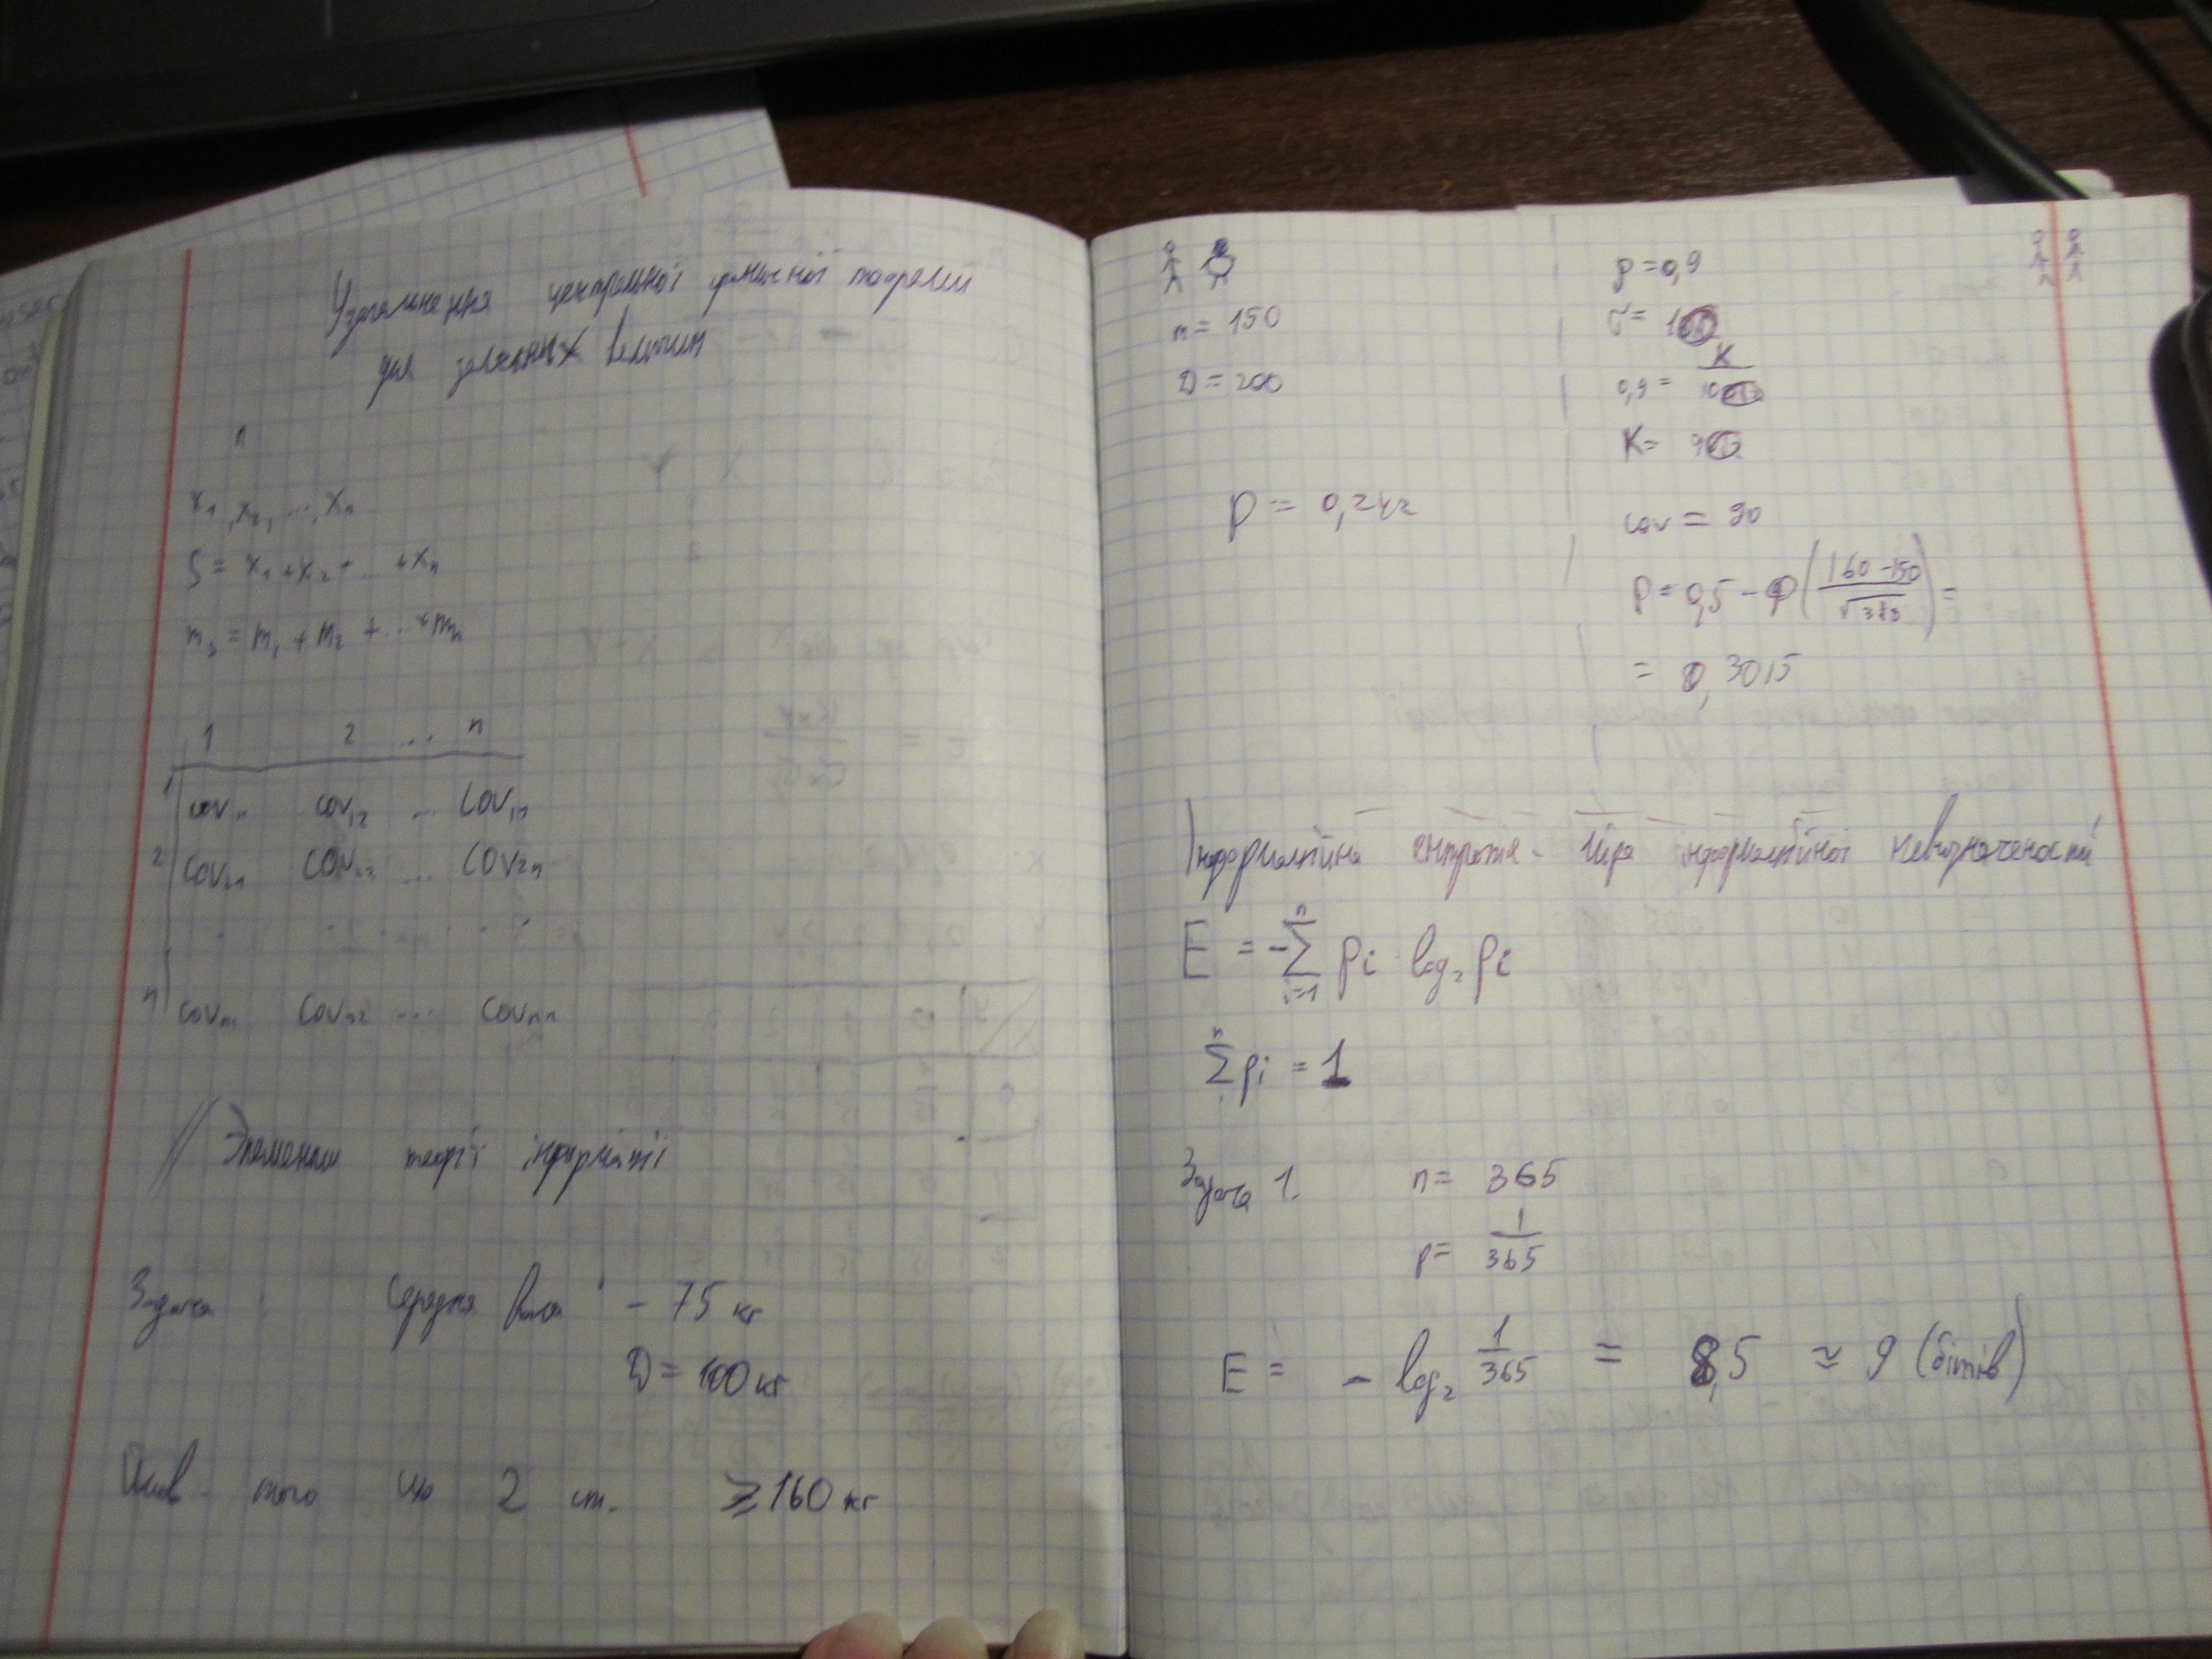 Узагальнення центральної граничної теореми
для залежних величин
n
x₁, x₂, ..., xₙ
S = x₁ + x₂ + ... + xₙ
mₛ = m₁ + m₂ + ... + mₙ
1 2 ... n
1 cov₁₁ cov₁₂ ... cov₁ₙ
2 cov₂₁ cov₂₂ ... cov₂ₙ
n covₙ₁ covₙ₂ ... covₙₙ
// Элементи теорії інформації
Задача Середня вага - 75 кг
D = 100 кг
Ймов. того що 2 ст. ⩾ 160 кг
m = 150
D = 200
p = 0,242
ρ = 0,9
0,9 = K
K =
cov = 90
P = 0,5 - Φ((160 - 150)/√380) =
= 0,3015
Інформаційна ентропія - міра інформаційної невизначеності
E = -∑ᵢ₌₁ⁿ pᵢ log₂ pᵢ
∑ⁿ pᵢ = 1
Задача 1. n = 365
p = 1/365
E = - log₂ 1/365 = 8,5 ≈ 9 (бітів)